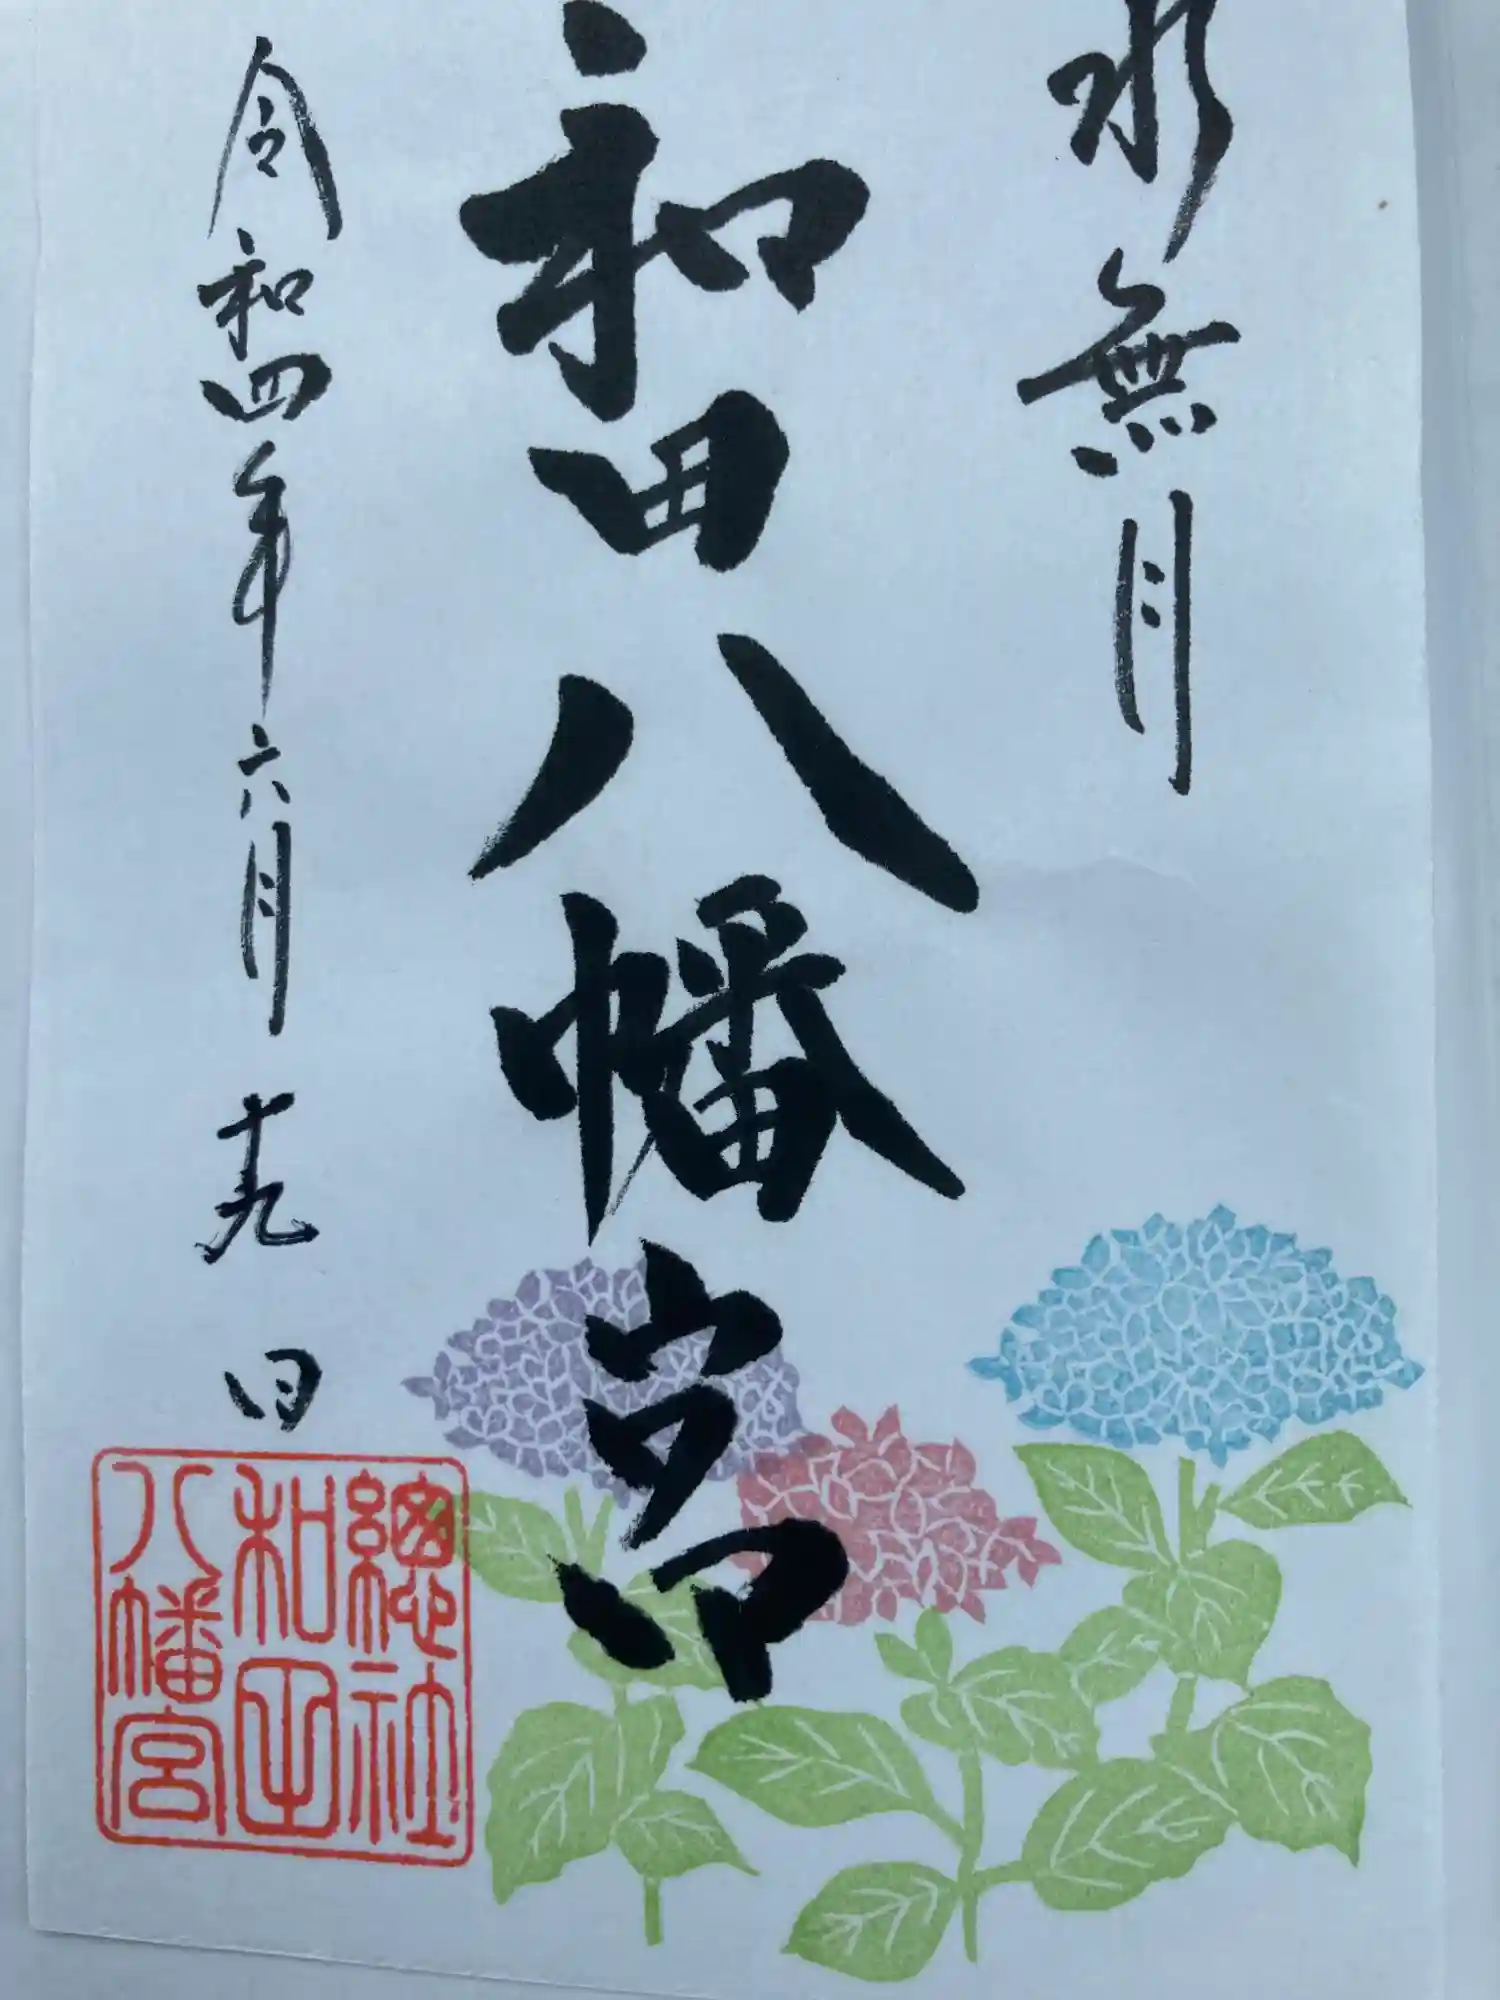 水無月
和田八幡宮
令和四年六月十九日
總社
和田
八幡宮